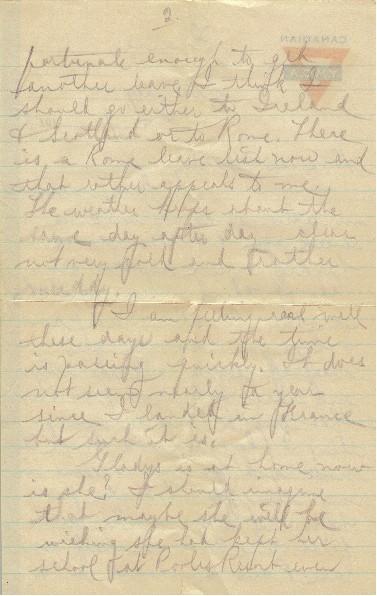 3.
CANADIAN
fortunate enough to get
another leave I think I
should go either to Ireland
& Scotland or to Rome. There
is a Rome leave list now and
that rather appeals to me.
The weather keeps about the
same day after day clear
not very cold and rather
muddy.
I am feeling real well
these days and the time
is passing quickly. It does
not seem nearly a year
since I landed in France
but such it is.
Gladys is at home now
is she? I should imagine
that maybe she will be
wishing she had kept her
school at Pooles Resort even